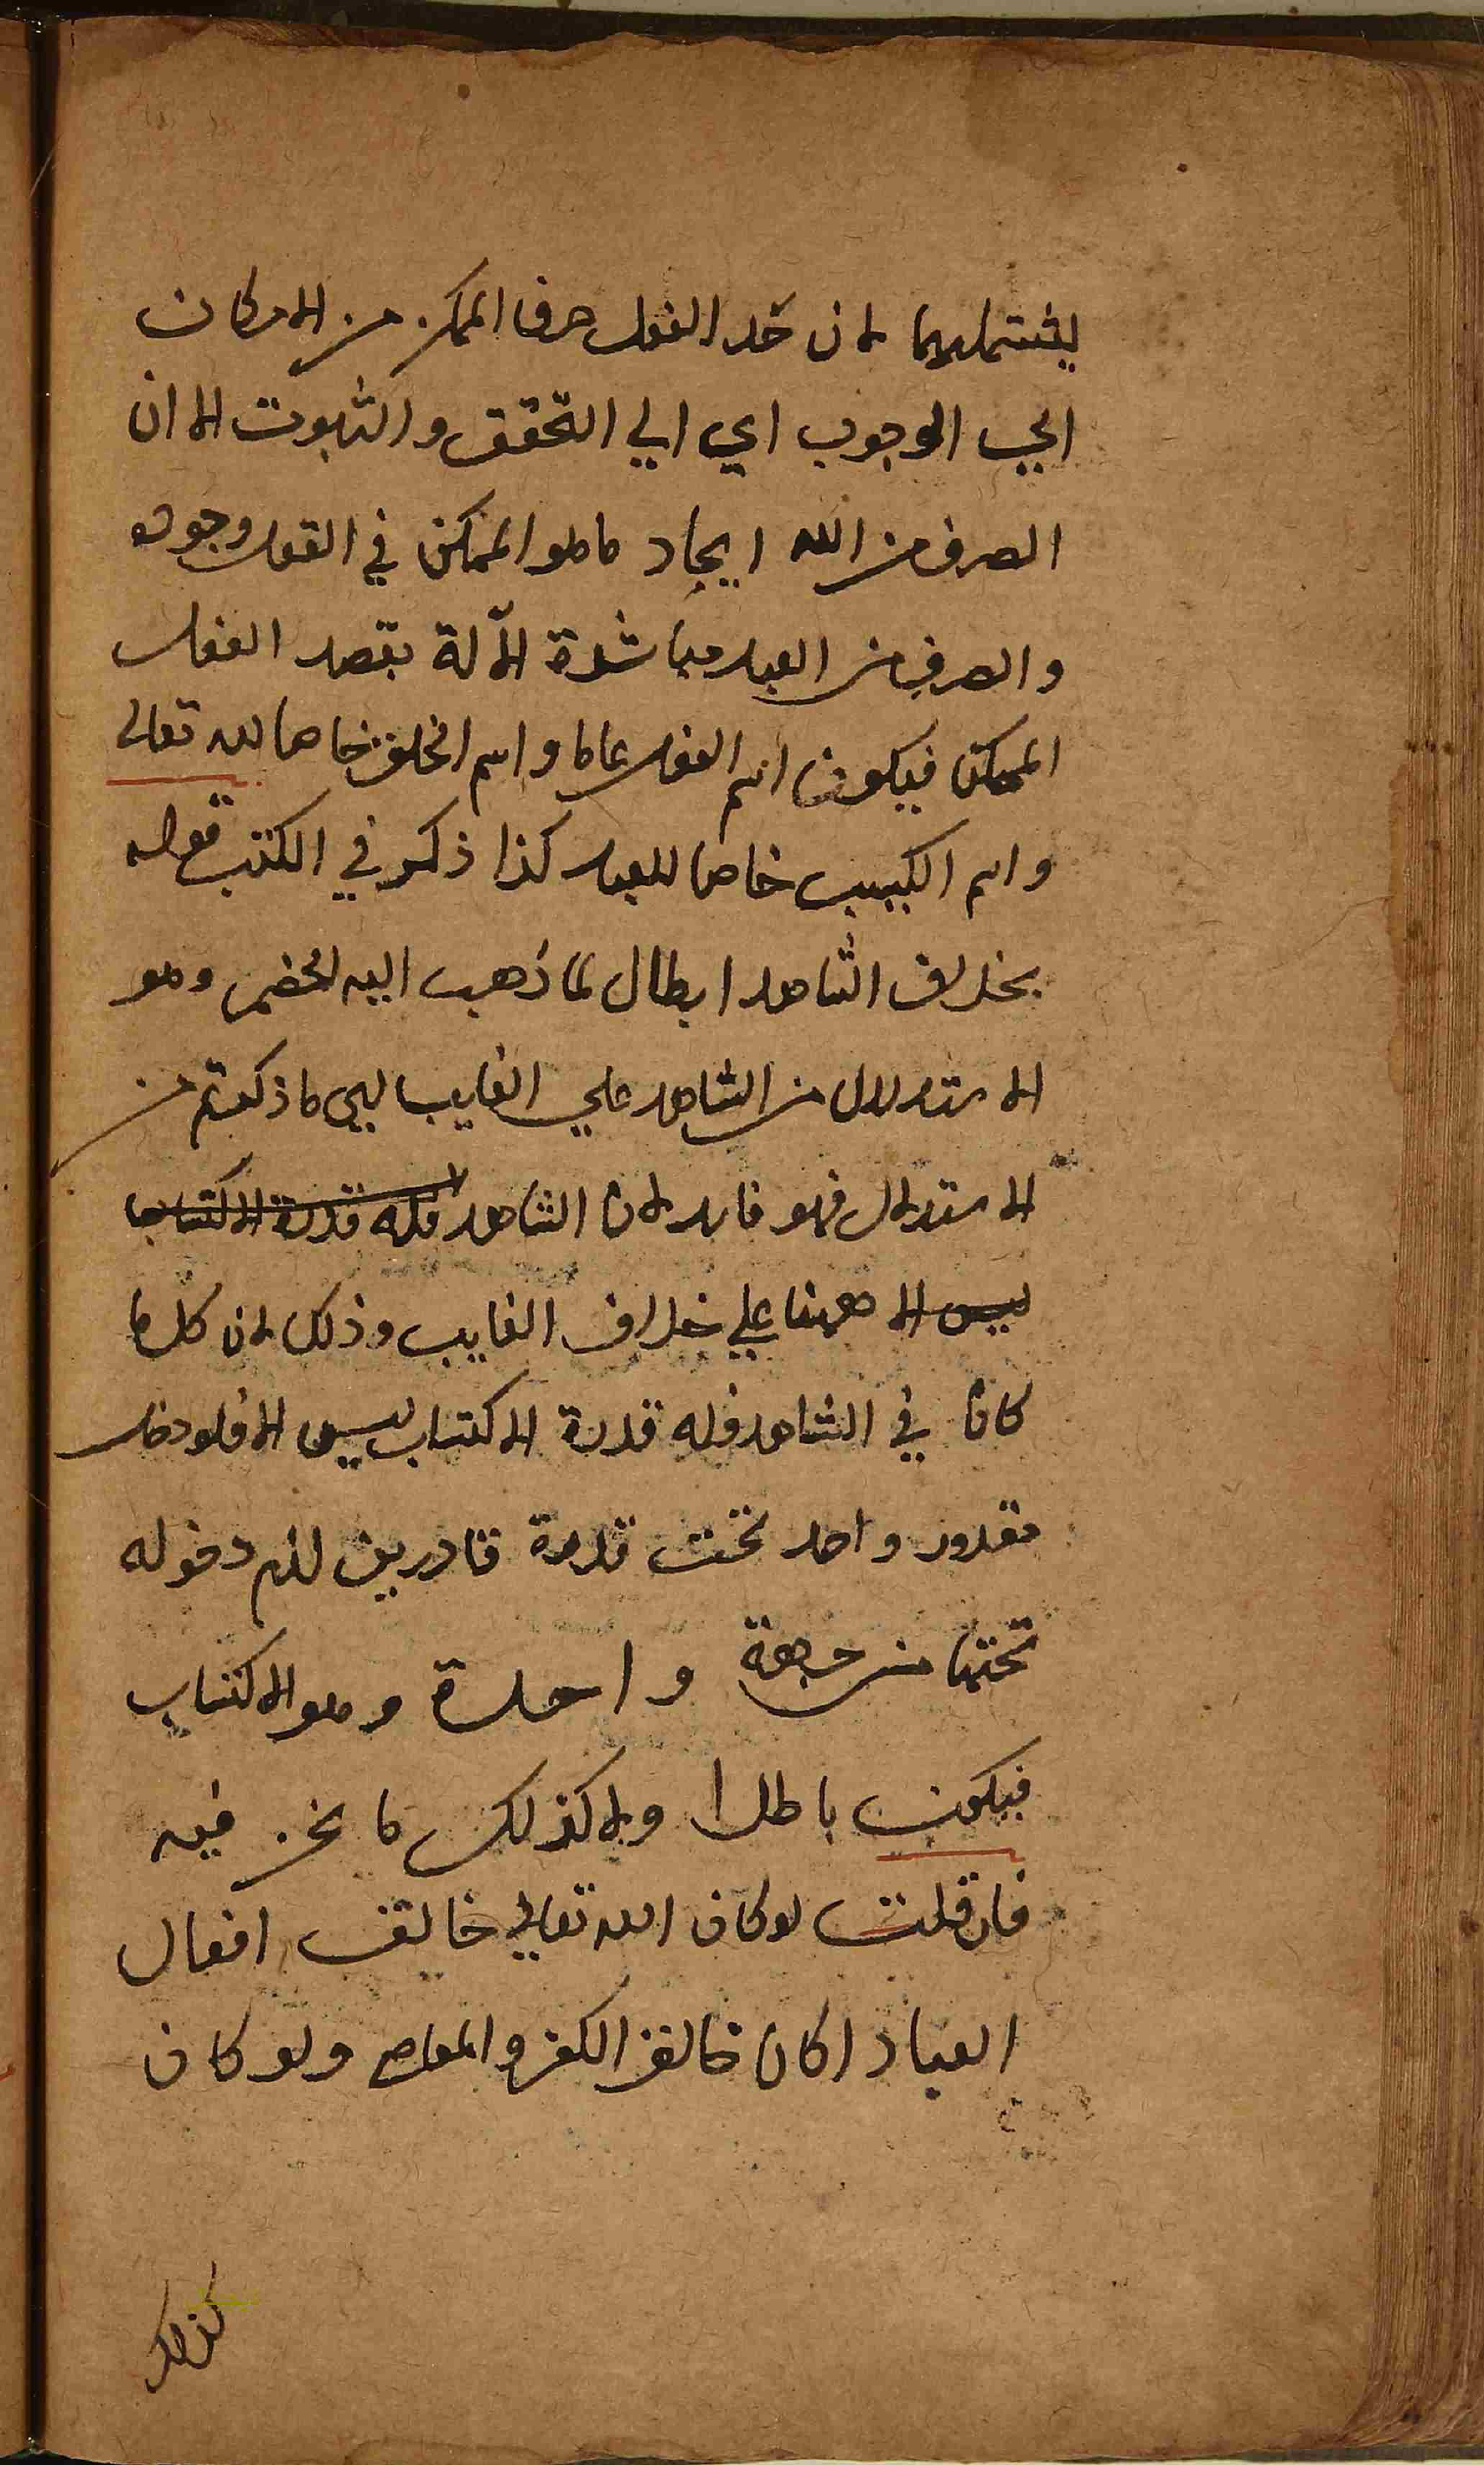 يشتملهما لان حد الفعل صرف الممكن من الامكان
الي الوجوب اي الي التحقق والثبوت الا ان
الصرف من الله ايجاد ما هو الممكن في العقل وجوده
والصرف من العبد مباشرة الآلة بقصد الفعل
الممكن فيكون اسم الفعل عاما واسم الخلق خاصا لله تعالى
واسم الكسب خاصا للعبد كذا ذكر في الكتب قوله
بخلاف الشاهد ابطال لما ذهب اليه الخصم وهو
الاستدلال من الشاهد علي الغايب ليس ما ذكرتم من
الاستدلال فهو فاسد لان الشاهد فله قدرة الاكتساب
ليس الا ههنا علي خلاف الغايب وذلك لان كل ما
كان في الشاهد فله قدرة الاكتساب ليس الا فلو دخل
مقدور واحد تحت قدرة قادرين لزم دخوله
تحتها من جهة واحدة وهو الاكتساب
فيكون باطلا ولا كذلك ما نحن فيه
فان قلت لو كان الله تعالي خالق افعال
العباد لكان خالق الكفر والمعاصي ولو كان
كذلك